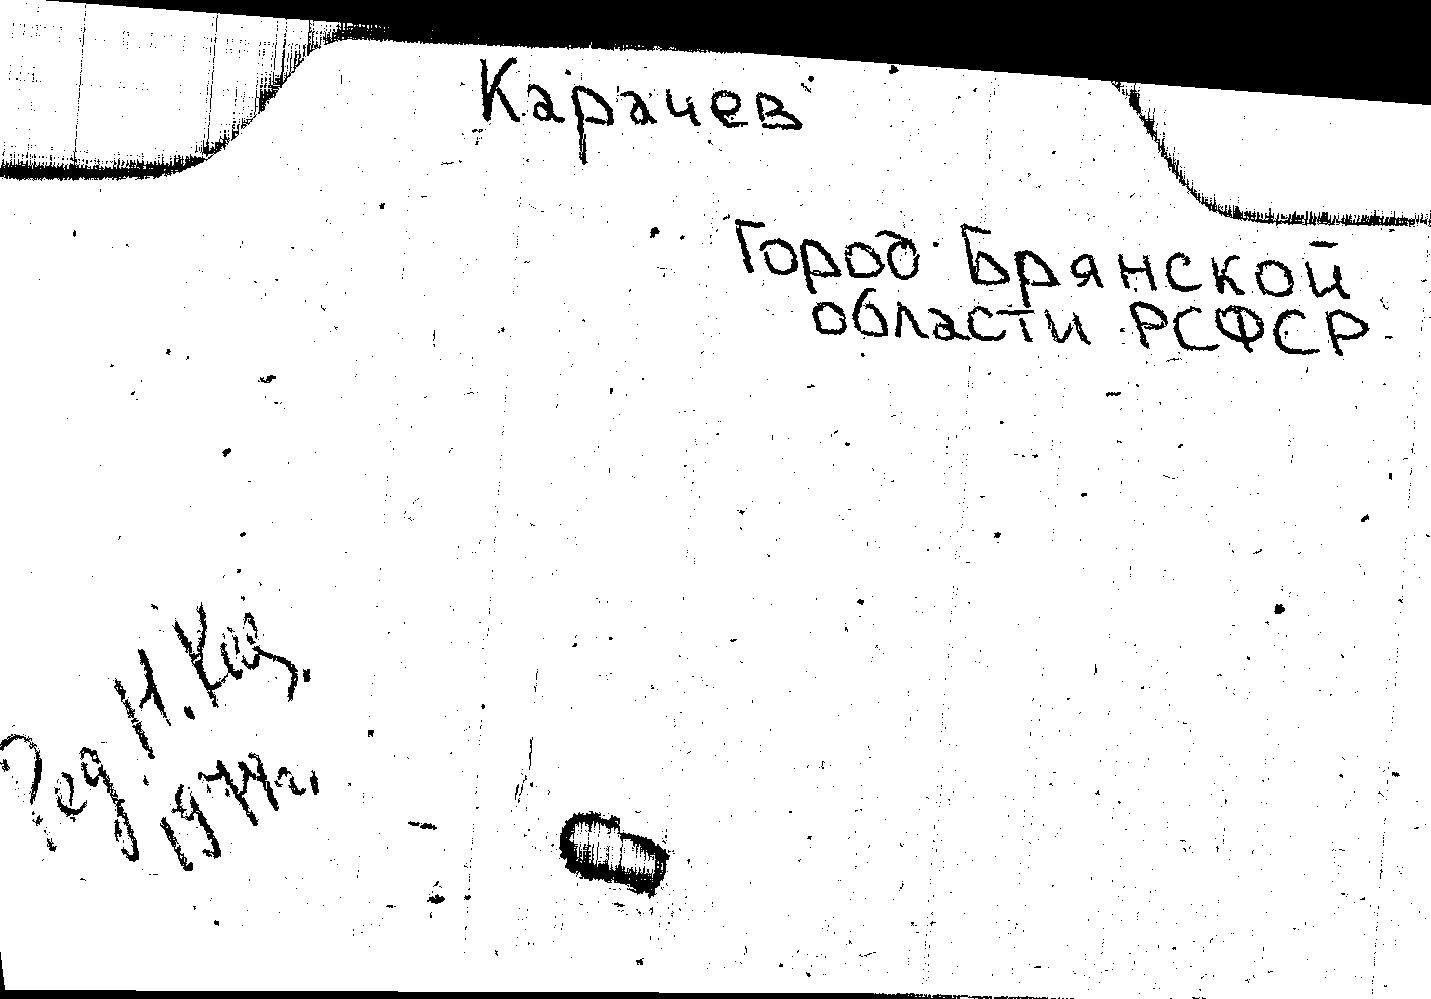 Карачев
Город Брянской
области РСФСР
Ред. Н. Каз.
1974г.